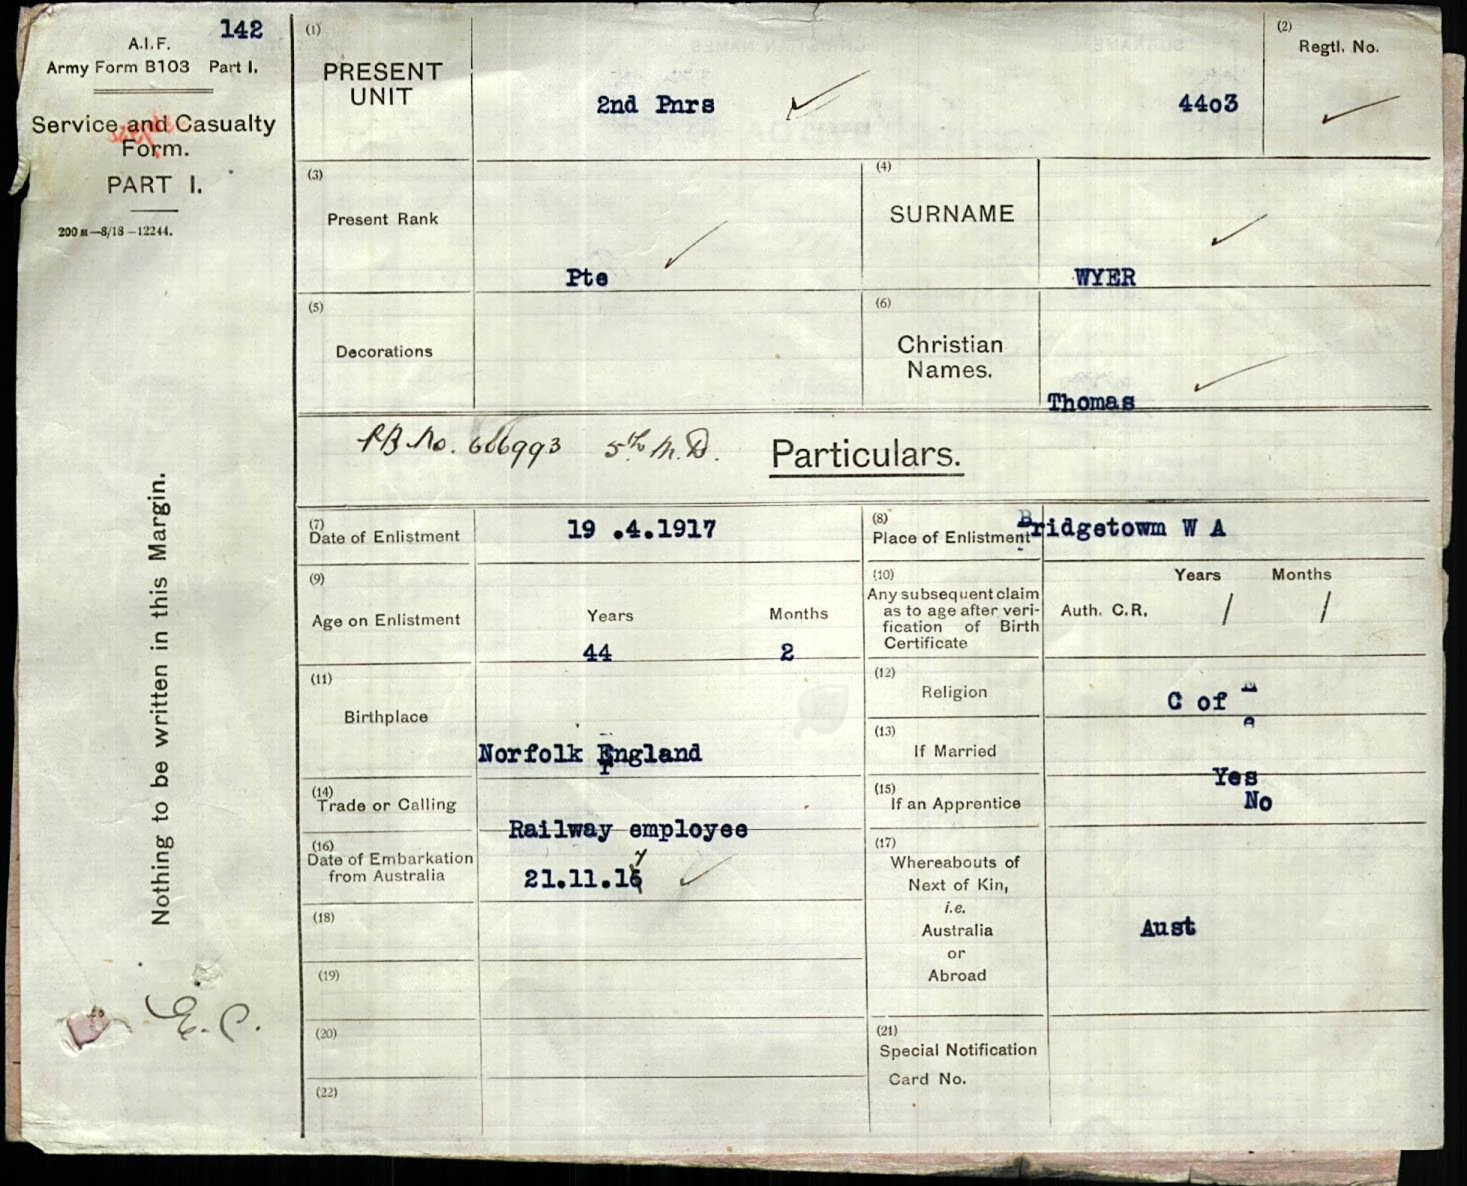 142
A.I.F.
Army Form B103 Part I.
Service and Casualty
Form.
PART I.
200 M—8/18—12244.
Nothing to be written in this Margin.
E.C.
(1)
PRESENT
UNIT
2nd Pnrs
4403
(2)
Regtl. No.
(3)
Present Rank
Pte
(4)
SURNAME
WYER
(5)
Decorations
(6)
Christian
Names.
Thomas
PB No. 606993 5th M.D.
Particulars.
(7)
Date of Enlistment
19 .4.1917
(8)
Place of Enlistment
Bridgetowm W A
(9)
Age on Enlistment
Years
Months
44
2
(10)
Any subsequent claim
as to age after veri-
fication of Birth
Certificate
Years
Months
Auth. C.R.
/
/
(11)
Birthplace
Norfolk England
(12)
Religion
C of E
(13)
If Married
Yes
(14)
Trade or Calling
Railway employee
(15)
If an Apprentice
No
(16)
Date of Embarkation
from Australia
21.11.17
(17)
Whereabouts of
Next of Kin,
i.e.
Australia
or
Abroad
Aust
(18)
(19)
(20)
(21)
Special Notification
Card No.
(22)